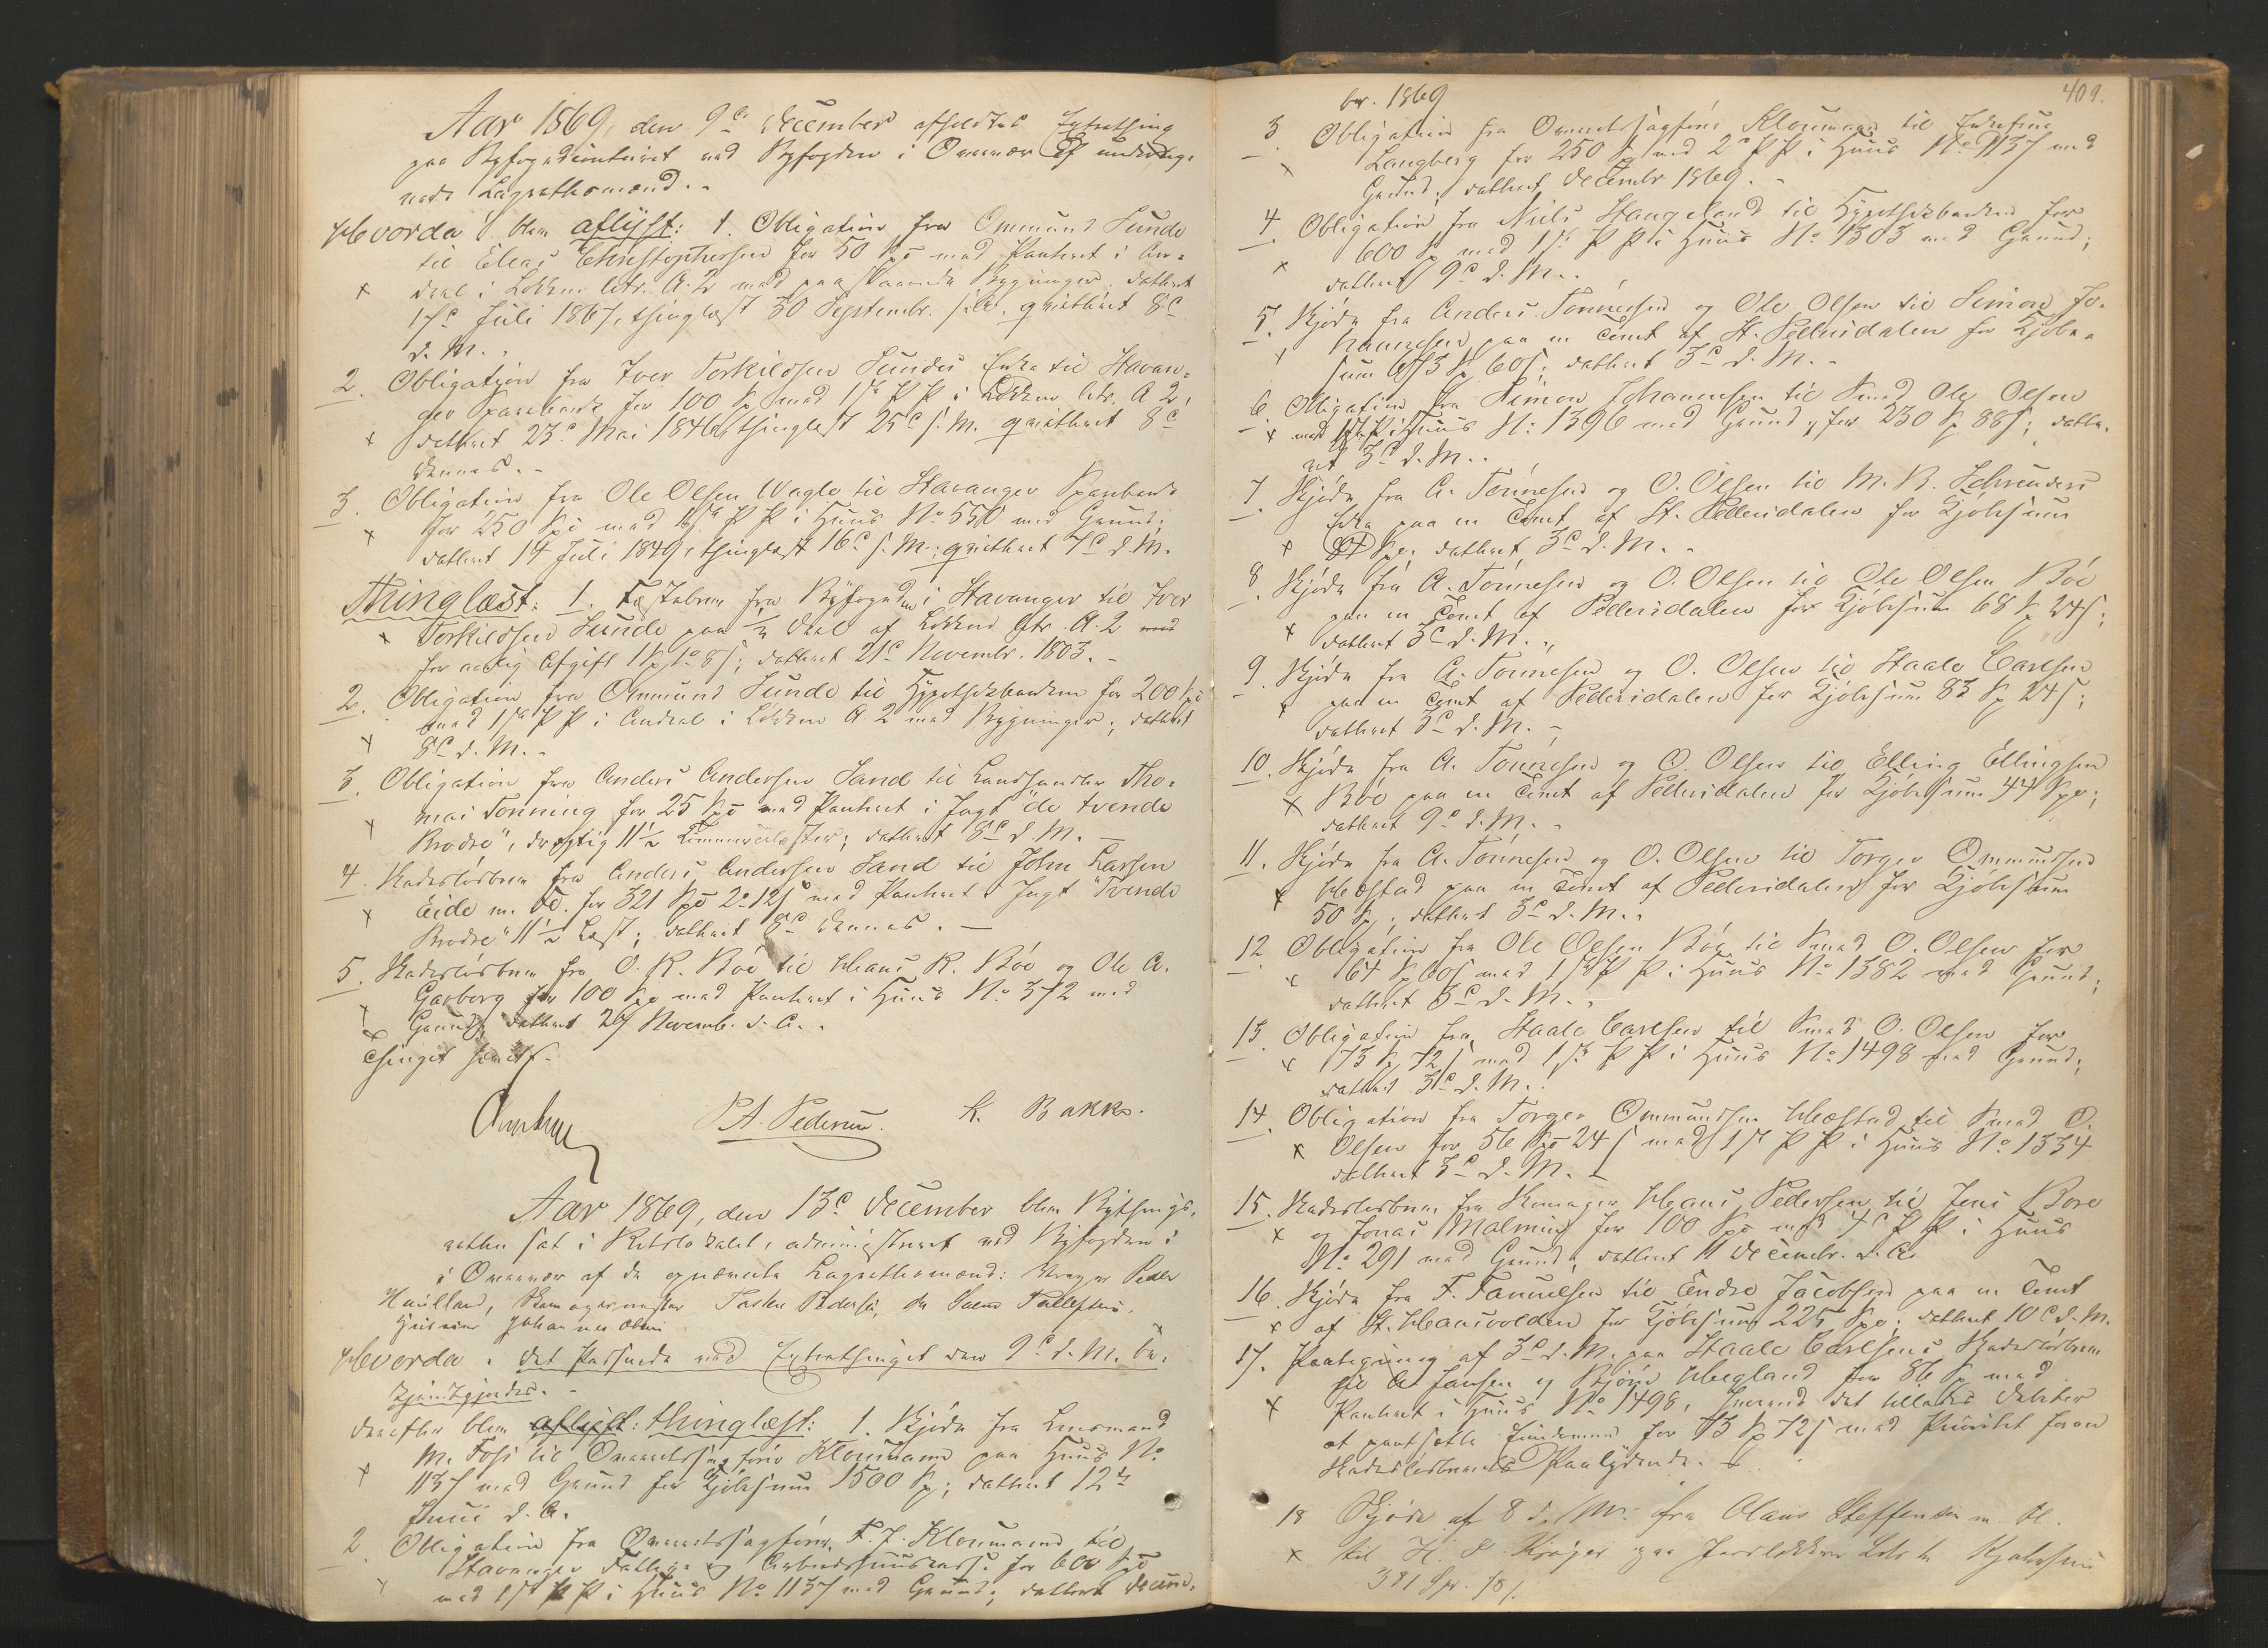 Aar 1869, den 9de December afholdtes Extrathing
paa Byfogedcontoiret ved Byfogden i Overvær af underteg-
nede Lagrettesmænd.-
Hvorda blev aflyst: 1. Obligation fra Ommund Sunde
til Elias Christophersen for 50 Spd med Panteret i An-
deel i Løkken Litr. A. 2 med paastaaende Bygninger, dateret
17de Juli 1867, thinglæst 30 Septembr. s. A. qvitteret 8de
d. M.
2. Obligation fra Iver Torkildsen Sundes Enke til Stavan-
ger Sparebank for 100 Sp med 1ste P P i Løkken Litr. A 2,
dateret 23de Mai 1846, thinglæst 25de s. M. qvitteret 8de
dennes.-
3. Obligation fra Ole Olsen Wagle til Stavanger Sparebank
for 250 Spd med 1ste P P i Huus No 550 med Grund;
dateret 14 Juli 1849, thinglæst 16de s. M.; qvitteret 7de d. M.
Thinglæst: 1. Fæstebrev fra Byfogden i Stavanger til Iver
Torkildsen Sunde paa 1/2 Deel af Løkken Litr. A. 2 med
for aarlig Afgift 1 Sp 1 o 8 s; dateret 21de Novembr. 1803.-
2. Obligation fra Ommund Sunde til Hypothekbanken for 200 Spd
med 1ste P P i Andeel i Løkken A 2 med Bygninger; dateret
8de d. M.-
3. Obligation fra Anders Andersen Sand til Landhandler Tho-
mas Tonning for 25 Spd med Panteret i Jagt "de tvende
Brødre", drægtig 11 1/2 Commercelæster; dateret 8de d. M.-
4. Skadesløsbrev fra Anders Andersen Sand til John Larsen
Eide m. Fl. for 321 Spd 2 o 12 s med Panteret i Jagt "Tvende
Brødre" 11 1/2 Læst; dateret 8de dennes.-
5. Skadesløsbrev fra O. R. Bøe til Hans R. Bøe og Ole A.
Garborg for 100 Spd med Panteret i Huus No 372 med
Grund, dateret 29 Novemb. d. A..
Thinget hævet.
P. A. Pedersen. K. Bakke.
Aar 1869, den 13de December blev Bythings-
retten sat i Retslokalet, administreret ved Byfogden i
i Overvær af de opnævnte Lagrettesmænd: Peder
Haùlland, Skomagermester Tarsten Pedersen,
Johannes Olsen
Hvorda: det Passerede ved Extrathinget den 9de d. M. be-
kjendtgjordes.-
derefter blev aflyst: thinglæst: 1. Skjøde fra Lensmand
M. Foss til Overretssagfører Kloumann paa Huus No
1137 med Grund for Kjøbesum 1500 Sp; dateret 12te
Juni d. A.
2. Obligation fra Overretssagfører F. J. Kloumann til
Stavanger Fattig- og Arbeidshuuskasse for 600 Spd
med 1ste P P i Huus No 1137 med Grund; dateret Decem-
409.
br. 1869
3. Obligation fra Overretssagfører Kloumann til Enkefrue
Langberg for 250 Sp med 2den P P i Huus No 1137 med
Grund; dateret Decembr 1869.-
4. Obligation fra Niels Haugeland til Hypothekbanken for
600 Sp med 1ste P P i Huus No 1303 med Grund;
dateret 9de d. M..
5. Skjøde fra Anders Tønnesen og Ole Olsen til Simon Jo-
hannesen paa en Tomt af St. Pedersdalen for Kjøbe-
sum 673 Sp 60 s; dateret 3de d. M.-
6. Obligation fra Simon Johannesen til Smed Ole Olsen
med 1ste P P i Huus No: 1396 med Grund, for 230 Sp 88 s; date-
ret 3de d. M..
7. Skjøde fra A. Tønnesen og O. Olsen til M. R. Schreuders
Enke paa en Tomt af St. Pedersdalen for Kjøbesum
Spd. dateret 3de d. M.-
8. Skjøde fra A. Tønnesen og O. Olsen til Ole Olsen Bøe
paa en Tomt af Pedersdalen for Kjøbesum 68 Sp 24 s;
dateret 3de d. M..
9. Skjøde fra A. Tønnesen og O. Olsen til Staale Carlsen
paa en Tomt af Pedersdalen for Kjøbesum 83 Sp 24 s;
dateret 3de d. M.-
10. Skjøde fra A. Tønnesen og O. Olsen til Elling Ellingsen
Bøe paa en Tomt af Pedersdalen for Kjøbesum 44 Spd;
dateret 9de d. M.-
11. Skjøde fra A. Tønnesen og O. Olsen til Torger Ommundsen
Hæstad paa en Tomt af Pedersdalen for Kjøbesum
50 Sp; dateret 3de d. M..
12. Obligation fra Ole Olsen Bøe til Smed O. Olsen for
64 Sp 60 s med 1ste P P i Huus No 1382 med Grund;
dateret 3de d. M..
13. Obligation fra Staale Carlsen til Smed O. Olsen for
73 Sp 72 s med 1ste P P i Huus No 1498 med Grund;
dateret 3de d. M..
14. Obligation fra Torger Ommundsen Hæstad til Smed O.
Olsen for 56 Spd 24 s med 1ste P P i Huus No 1334
dateret 3de d. M.-
15. Skadesløsbrev fra Skomager Hans Pedersen til Jens Bore
og Jonas Malming for 100 Spd med 4de P P i Huus
No. 291 med Grund; dateret 11 Decembr. d. A.
16. Skjøde fra F. Samuelsen til Endre Jacobsen paa en Tomt
af St. Hansvolden for Kjøbesum 225 Spd; dateret 10de d. M.
17. Paategning af 3de d. M. paa Staale Carlsens Skadesløsbrev
til A Jansen og Bjørn Hegland for 86 Sp med
Panteret i Huus No 1498, hvorved det tillades Debitor
at pantsætte Eiendommen for 73 Sp 72 s med Prioritet foran
Skadesløsbrevets Paalydende.-
18 Skjøde af 8 d. M. fra Olaus Steffensen m. fl.
til H. S. Krøger paa Jordløkken Kjøbesum
381 Spd. 18 s.